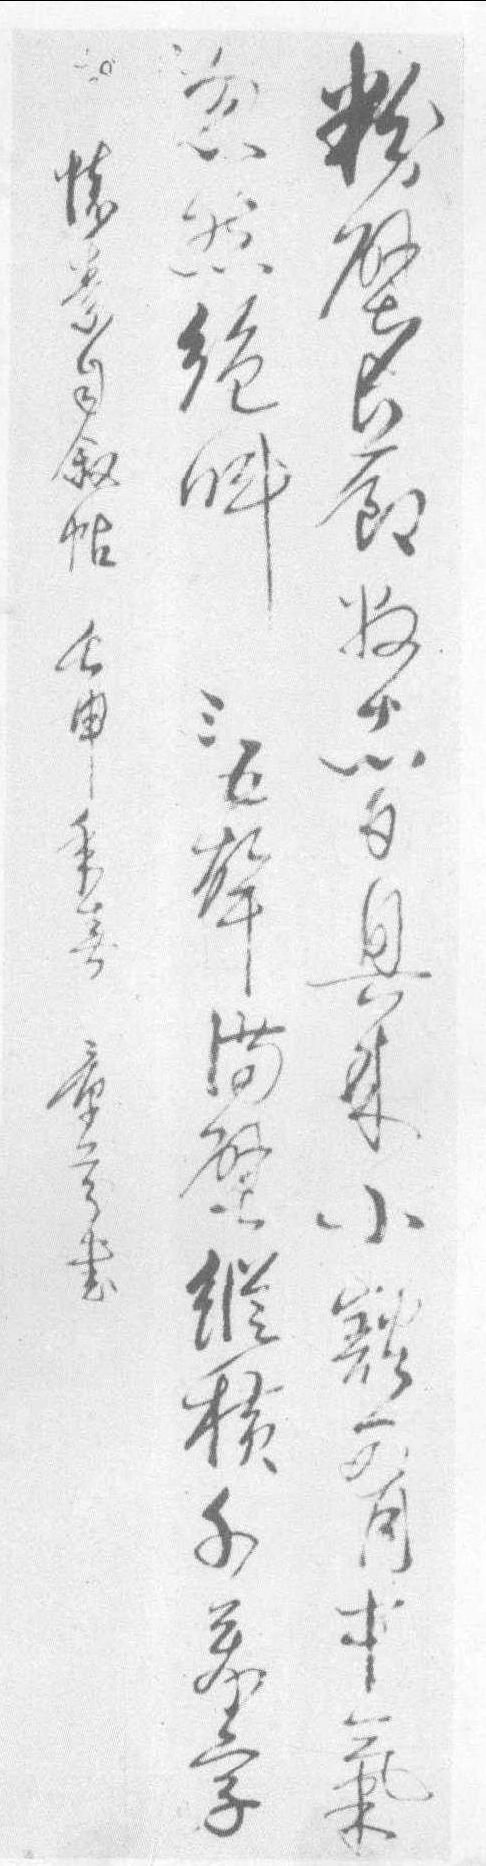 粉壁長廊數十間興來小豁胸中氣
忽然絕叫三五聲滿壁縱橫千萬字
懷素自敘帖 壬申年春 童 書